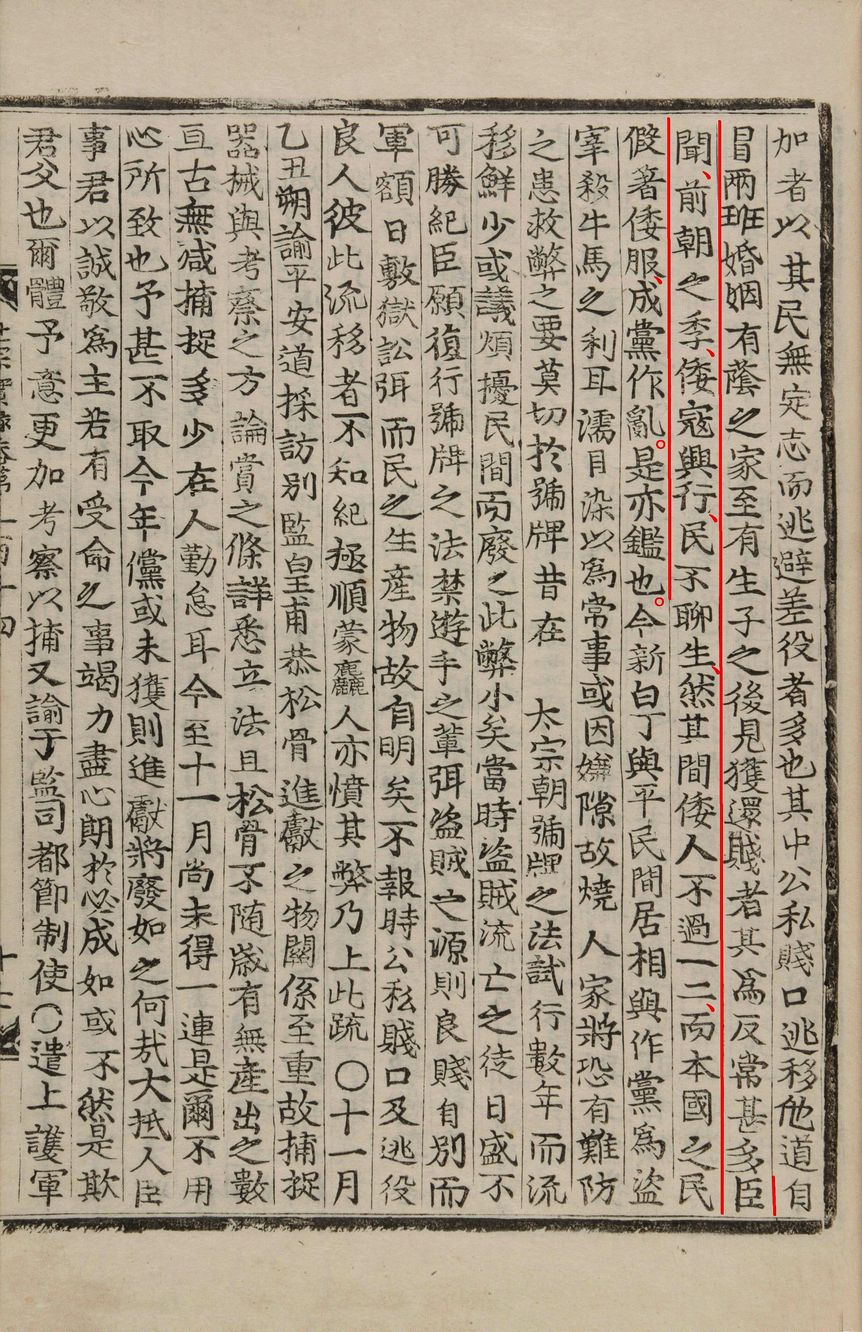 加者以其民無定志而逃避差役者多也其中公私賤口逃移他道自
冒兩班婚姻有蔭之家至有生子之後見獲還賤者其爲反常甚多臣
聞、前朝之季、倭寇興行、民不聊生、然其間倭人不過一二、而本國之民
假著倭服、成黨作亂。是亦鑑也。今新白丁與平民間居相與作黨爲盜
宰殺牛馬之利耳濡目染以爲常事或因嫌隙故燒人家將恐有難防
之患救弊之要莫切於號牌昔在 太宗朝號牌之法試行數年而流
移鮮少或議煩擾民間而廢之此弊小矣當時盜賊流亡之徒日盛不
可勝紀臣願復行號牌之法禁遊手之輩弭盜賊之源則良賤自別而
軍額日敷獄訟弭而民之生產物故自明矣不報時公私賤口及逃役
良人彼此流移者不知紀極順蒙麤人亦憤其弊乃上此疏○十一月
乙丑朔諭平安道採訪別監皇甫恭松骨進獻之物關係至重故捕捉
器械與考察之方論賞之條詳悉立法且松骨不隨歲有無產出之數
亘古無減捕捉多少在人勤怠耳今至十一月尚未得一連是爾不用
心所致也予甚不取今年儻或未獲則進獻將廢如之何哉大抵人臣
事君以誠敬爲主若有受命之事竭力盡心期於必成如或不然是欺
君父也爾體予意更加考察以捕又諭于監司都節制使○遣上護軍